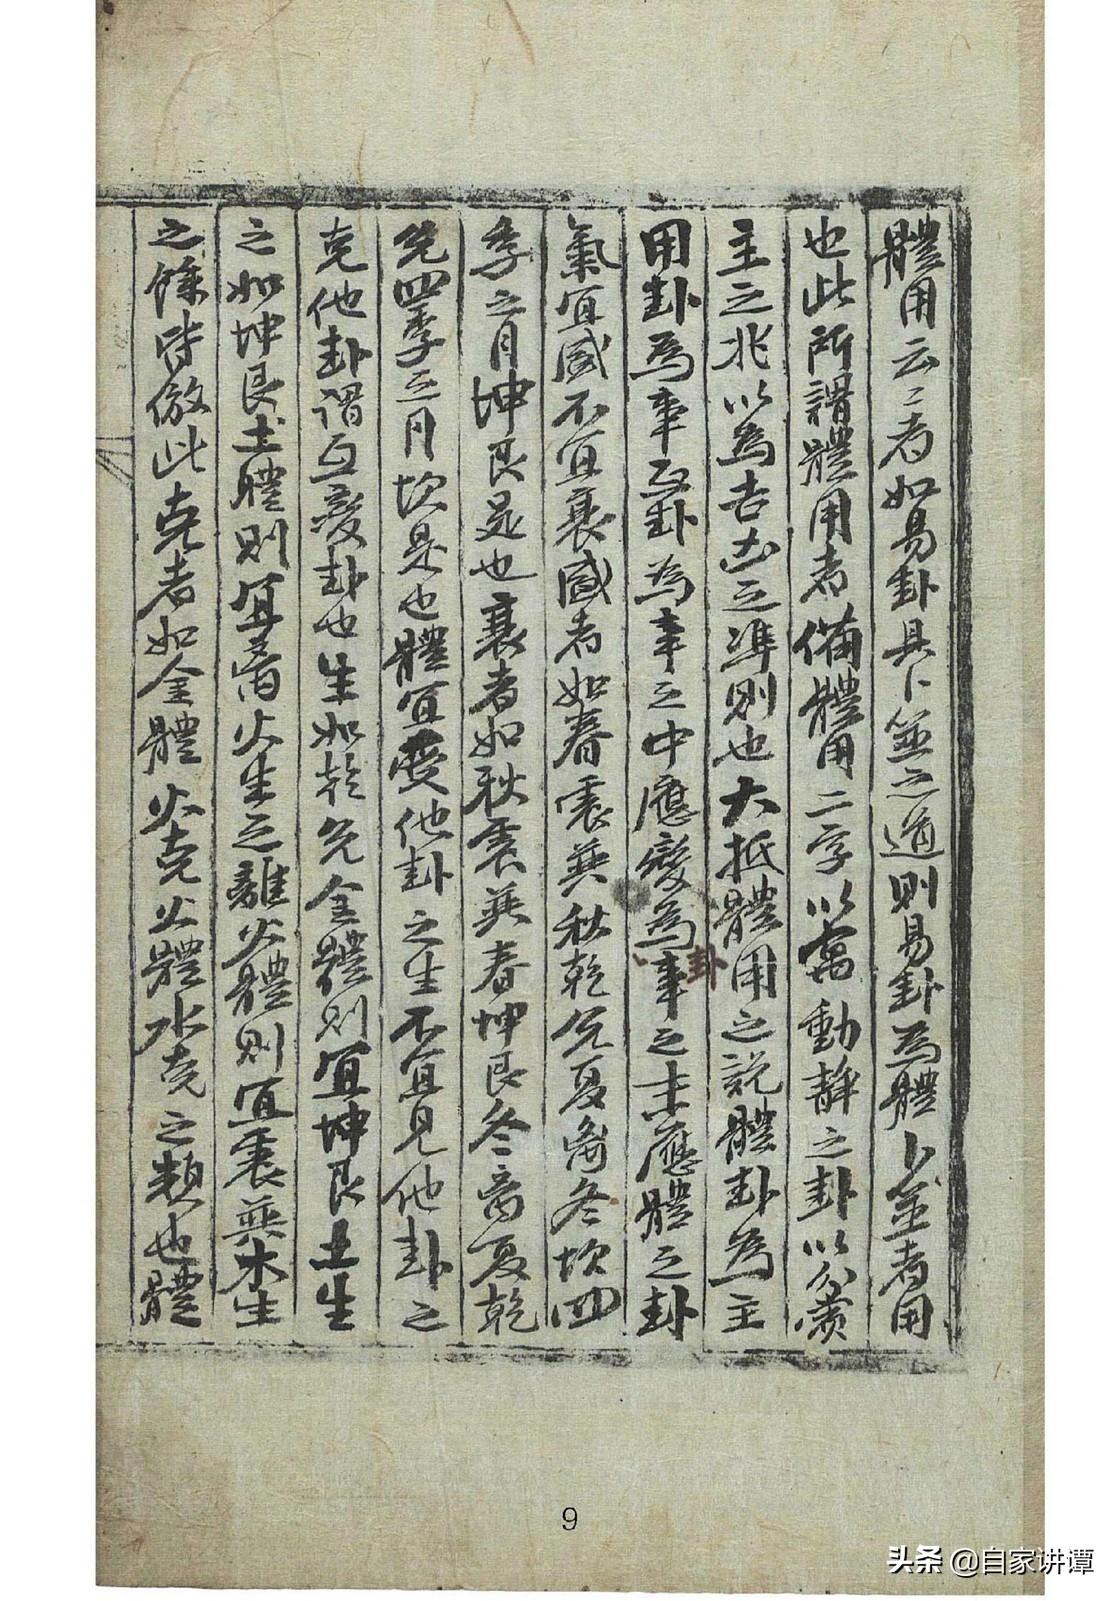 體用云云者如易卦具卜筮之道則易卦為體卜筮者用
也此所謂體用者備體用二字以寓動静之卦以分賔
主之兆以為吉凶之準則也大抵體用之説體卦為主
用卦為事互卦為事之中應變卦為事之末應體之卦
氣宜盛不宜衰盛者如春震巽秋乾兌夏离冬坎四
季之月坤艮是也衰者如秋震巽春坤艮冬离夏乾
兌四季之月坎是也體宜受他卦之生不宜見他卦之
克他卦謂互變卦也生如乾兌金體則宜坤艮土生
之如坤艮土體則宜离火生之離火體則宜震巽木生
之餘皆倣此克者如金體火克火體水克之類也體
9
头条 @自家讲谭